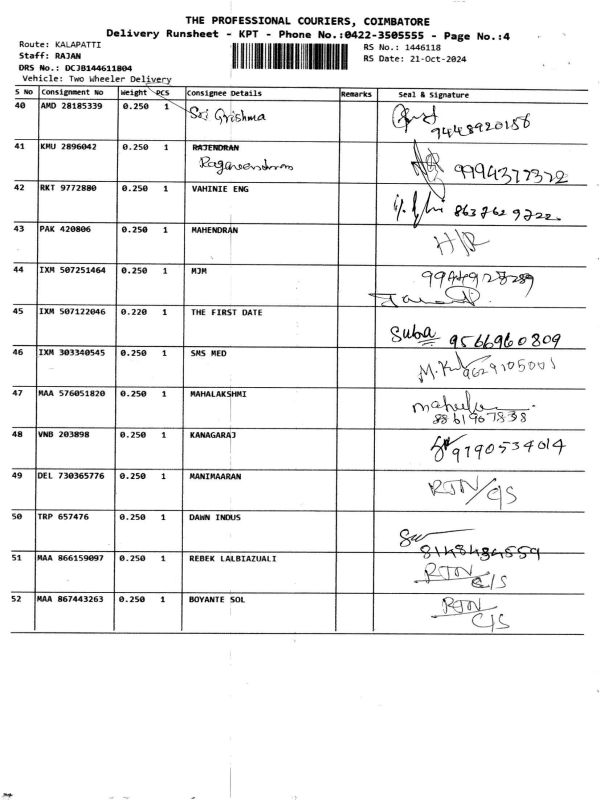 THE PROFESSIONAL COURIERS, COIMBATORE
Delivery Runsheet - KPT - Phone No.:0422-3505555 - Page No.:4
Route: KALAPATTI
RS No.: 1446118
Staff: RAJAN
RS Date: 21-Oct-2024
DRS No.: DCJB144611804
Vehicle: Two Wheeler Delivery
S No Consignment No Weight PCS Consignee Details Remarks Seal & Signature
40 AMD 28185339 0.250 1 Sri Grishma
9448920156
41 KMU 2896042 0.250 1 RAJENDRAN
9994377372
42 RKT 9772880 0.250 1 VAHINIE ENG
8637629722
43 PAK 420806 0.250 1 MAHENDRAN H/R
44 IXM 507251464 0.250 1 MJM
45 IXM 507122046 0.220 1 THE FIRST DATE
Suba 9566960809
46 IXM 303340545 0.250 1 SMS MED
9629105001
47 MAA 576051820 0.250 1 MAHALAKSHMI
8861967838
48 VNB 203898 0.250 1 KANAGARAJ
9790534014
49 DEL 730365776 0.250 1 MANIMAARAN
RTN/C/S
50 TRP 657476 0.250 1 DAWN INDUS
8148484559
51 MAA 866159097 0.250 1 REBEK LALBIAZUALI RTN
C/S
52 MAA 867443263 0.250 1 BOYANTE SOL RTN
C/S